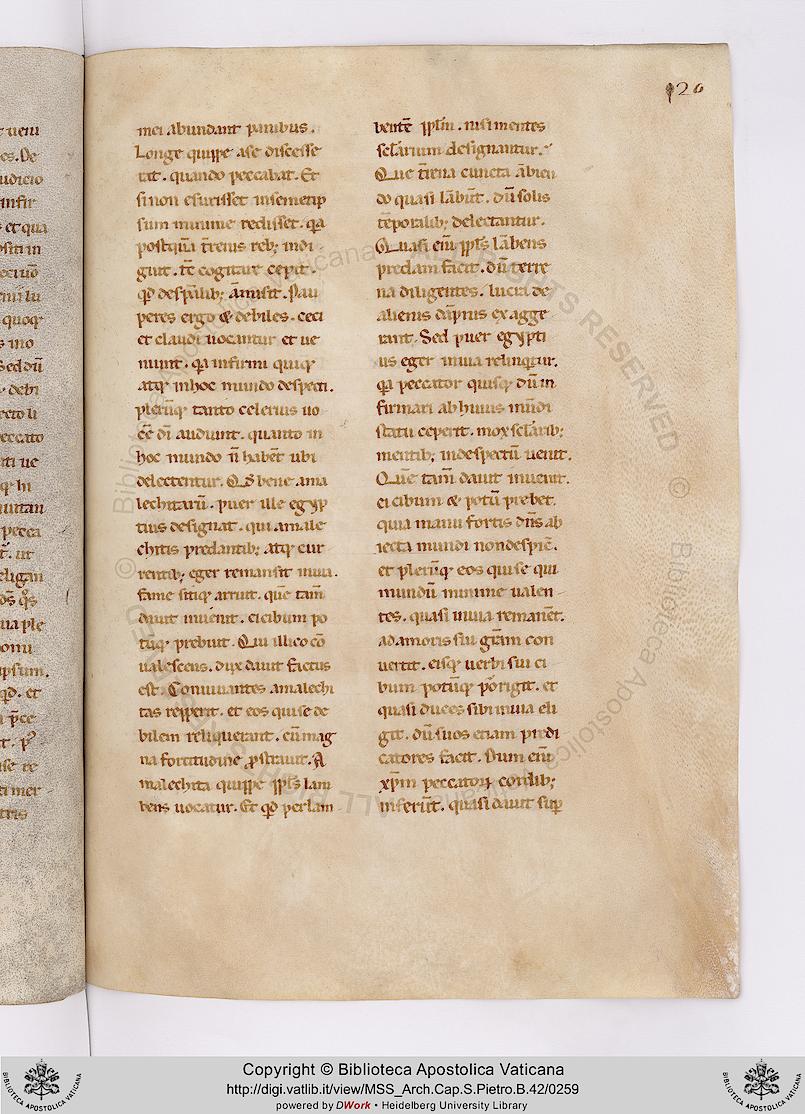 126
mei. abundant panibus.
Longe quippe ase discesse
rat. quando peccabat. Et
si non esurisset insemetip
sum minime redisset. q̇a
postquā t̄renis reb; indi
guit. t̄c cogitare cepit.
qđ desp̄alib; āmisit. Pau
peres ergo & debiles. ceci
et claudi uocantur et ue
niunt. q̇a infirmi quiq;
atq; inhoc mundo despecti.
plerūq; tanto celerius uo
cē dī audiunt. quanto in
hoc mundo ñ habēt ubi
delectentur. Qđ bene ama
lechitarū. puer ille egyp
tius designat. qui amale
chitis predantib; atq; cur
rentib; eger remansit inuia.
fame sitiq; aruit. que tam̄
dauit inuenit. ci cibum po
tūq; prebuit. Qui illico cō
ualescens. dux dauit factus
est. Conuiuantes amalechi
tas repperit. et eos qui se de
bilem reliquerant. cū mag
na fortitudine p̄strauit. A
malechita quippe ppl̄s lam
bens uocatur. Et qđ per lam
bentē ppl̄m. nisi mentes
scl̄arium designantur.
Que t̄rena cuncta ābien
do quasi lābunt. dū solis
tēporalib; delectantur.
Quasi eni ppl̄s lābens
predam facit. dū terre
na diligentes. lucra de
alienis dāpnis exagge
rant. Sed puer egypti
us eger inuia relinquitur.
q̇a peccator quisq; dū in
firmari ab huius mūdi
statu ceperit. mox scl̄arib;
mentib; indespectū uenit.
Quē tam̄ dauit inuenit.
ei cibum & potū prebet.
quia manu fortis dn̄s ab
iecta mundi non despic̄.
et plerūq; eos qui se qui
mundū minime ualen
tes. quasi inuia remanēt.
ad amoris sui gr̄am con
uertit. eisq; uerbi sui ci
bum potūq; porrigit. et
quasi duces sibi inuia eli
git. dū suos etiam predi
catores facit. Dum eni
xp̄m peccatoꝝ cordib;
inferūt. quasi dauit sup̄
Copyright © Biblioteca Apostolica Vaticana
http://digi.vatlib.it/view/MSS_Arch.Cap.S.Pietro.B.42/0259
powered by DWork • Heidelberg University Library